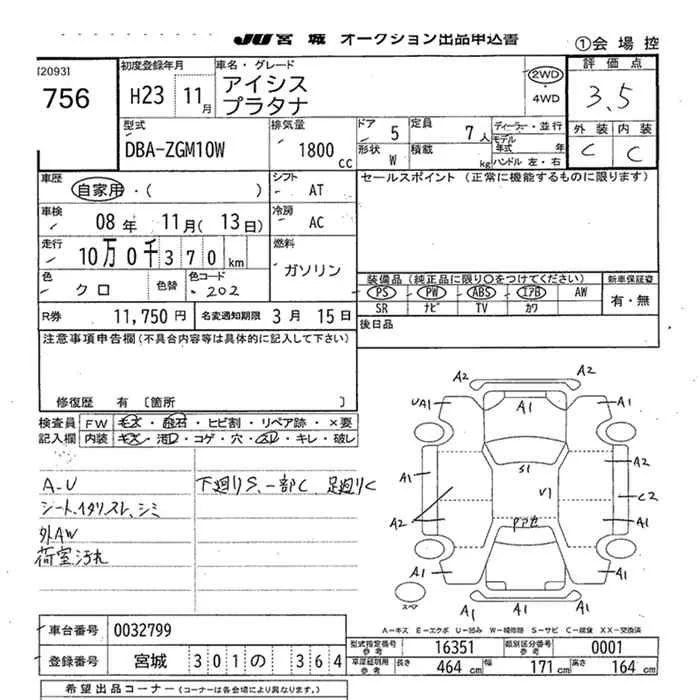 JU 宮城 オークション出品申込書
①会場控
[2093]
756
初度登録年月
H23 11月
車名・グレード
アイシス
プラタナ
2WD
4WD
評価点
3.5
外装 内装
C C
型式
DBA-ZGM10W
排気量
1800cc
ドア 5
定員 7人
形状 W
積載 kg
ディーラー・並行
モデル年式 年
ハンドル 左・右
車歴
自家用・( )
シフト AT
セールスポイント (正常に機能するものに限ります)
車検
08年 11月(13日)
冷房 AC
走行
10万0千370km
燃料
ガソリン
色
クロ
色替
色コード
202
装備品 (純正品に限り〇をつけてください)
PS PW ABS エアB AW
SR ナビ TV カワ
新車保証書
有・無
R券 11,750円
名変通知期限 3月 15日
後日品
注意事項申告欄 (不具合内容等は具体的に記入して下さい)
修復歴 有 〔箇所 〕
検査員記入欄
FW キズ・飛石・ヒビ割・リペア跡・×要
内装 キズ・汚レ・コゲ・穴・スレ・キレ・破レ
A-U
シートイタリスレ、シミ
外AW
荷室汚れ
下廻りS、一部C、足廻りC
A2
UA1
A1
A1
A1
A2
S1
V1
C2
A2
A1
A1
A1
A1
A1
スペア
A-キズ E-エクボ U-凹み W-補修跡 S-サビ C-腐食 XX-交換済
車台番号 0032799
登録番号 宮城 301 の 364
型式指定番号 参考 16351
類別区分番号 参考 0001
車庫証明用 参考 長さ 464cm 幅 171cm 高さ 164cm
希望出品コーナー (コーナーは各会場により異なります。)